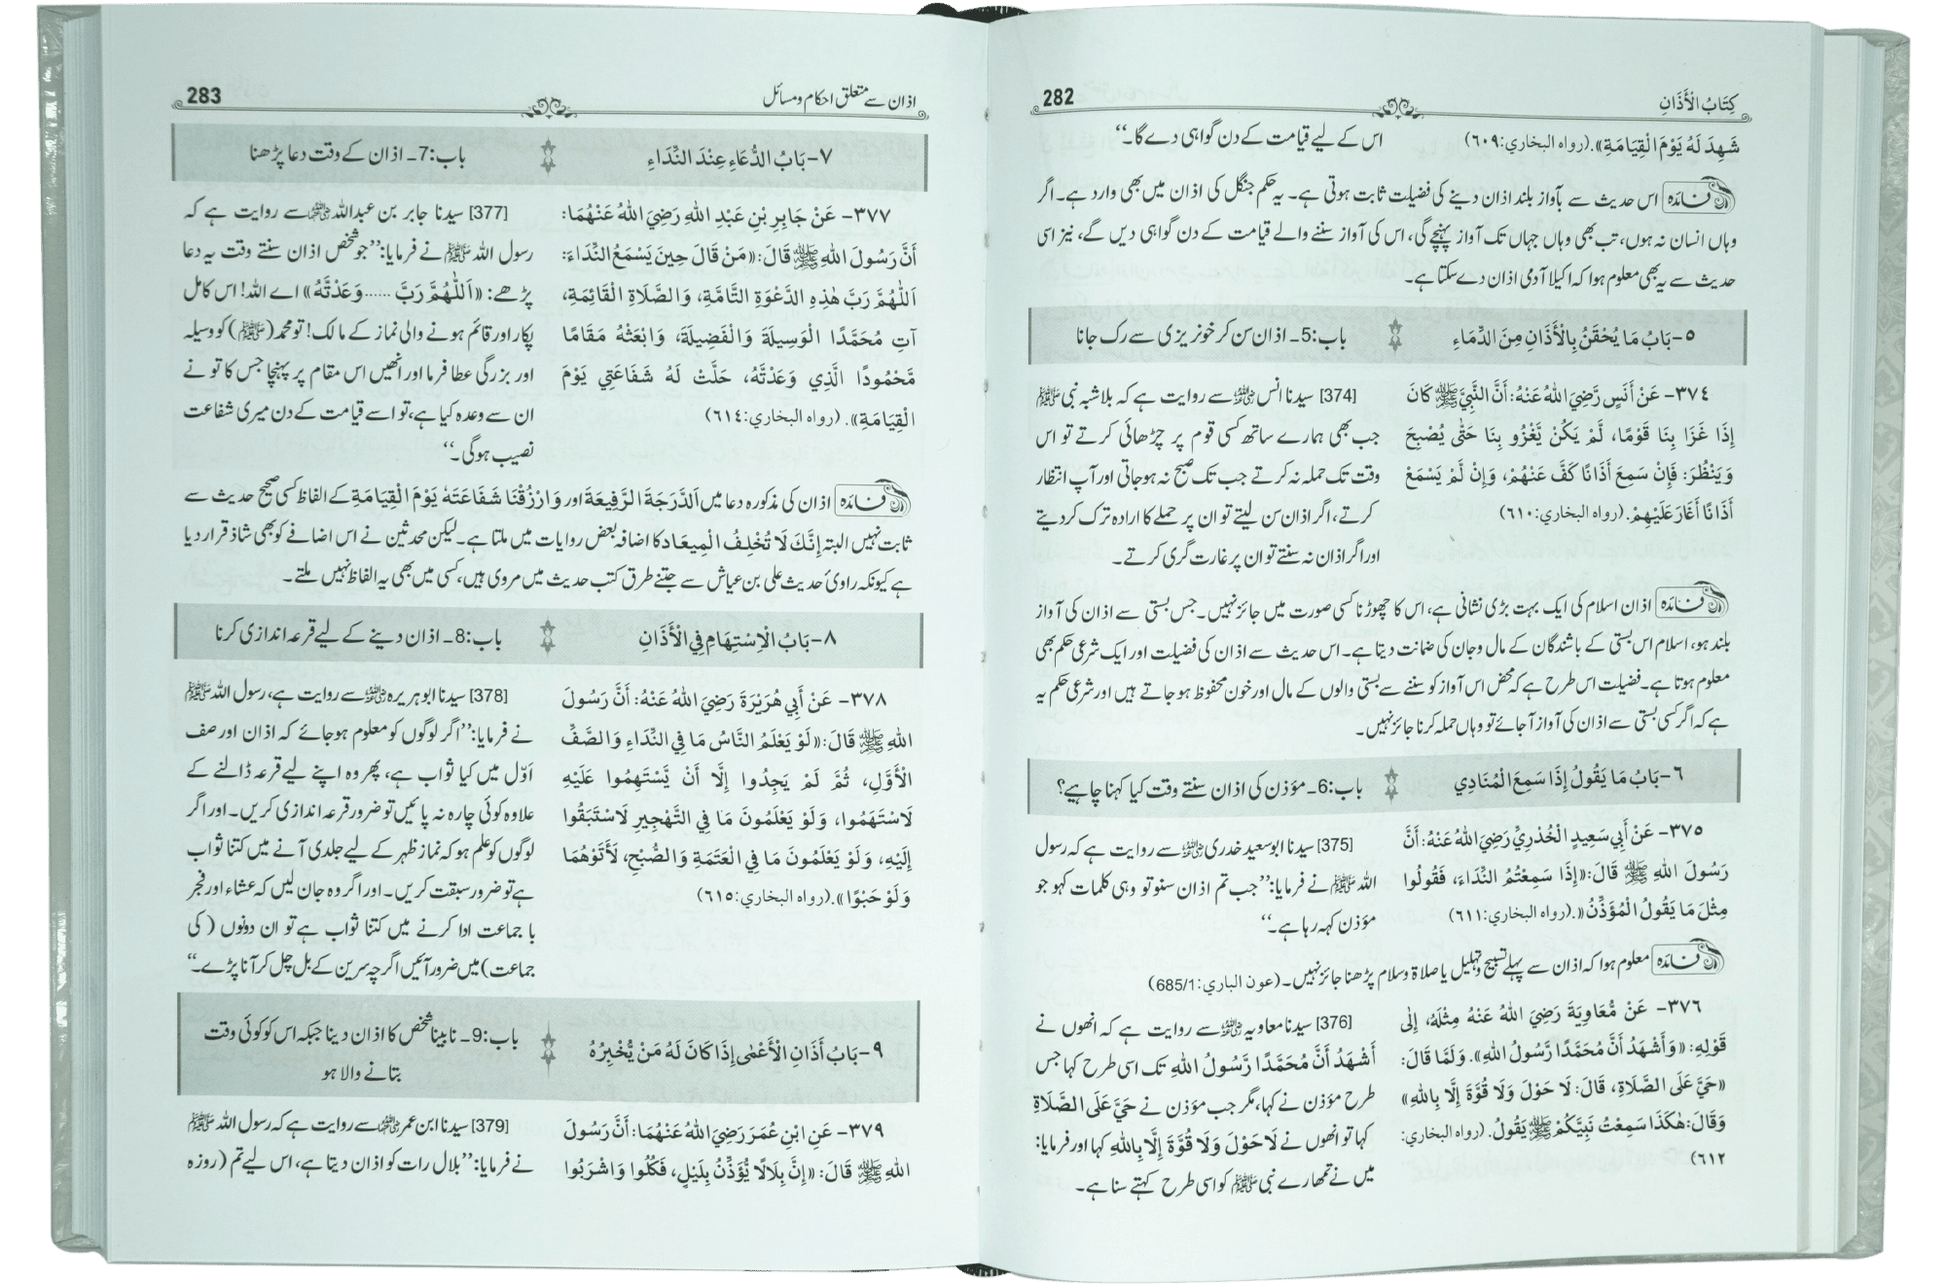 282
كِتَابُ الْأَذَانِ
شَهِدَ لَهُ يَوْمَ الْقِيَامَةِ». (رواه البخاري:٦٠٩)
اس کے لیے قیامت کے دن گواہی دے گا۔‘‘
فائدہ اس حدیث سے بآواز بلند اذان دینے کی فضیلت ثابت ہوتی ہے۔ یہ حکم جنگل کی اذان میں بھی وارد ہے۔ اگر
وہاں انسان نہ ہوں، تب بھی وہاں جہاں تک آواز پہنچے گی، اس کی آواز سننے والے قیامت کے دن گواہی دیں گے، نیز اسی
حدیث سے یہ بھی معلوم ہوا کہ اکیلا آدمی اذان دے سکتا ہے۔
٥- بَابُ مَا يُحْقَنُ بِالْأَذَانِ مِنَ الدِّمَاءِ
باب:5۔ اذان سن کر خونریزی سے رک جانا
٣٧٤- عَنْ أَنَسٍ رَضِيَ اللهُ عَنْهُ: أَنَّ النَّبِيَّ ﷺ كَانَ
إِذَا غَزَا بِنَا قَوْمًا، لَمْ يَكُنْ يَغْزُو بِنَا حَتَّى يُصْبِحَ
وَيَنْظُرَ: فَإِنْ سَمِعَ أَذَانًا كَفَّ عَنْهُمْ، وَإِنْ لَّمْ يَسْمَعْ
أَذَانًا أَغَارَ عَلَيْهِمْ. (رواه البخاري:٦١٠)
[374] سیدنا انس رضی اللہ عنہ سے روایت ہے کہ بلاشبہ نبی ﷺ
جب بھی ہمارے ساتھ کسی قوم پر چڑھائی کرتے تو اس
وقت تک حملہ نہ کرتے جب تک صبح نہ ہو جاتی اور آپ انتظار
کرتے، اگر اذان سن لیتے تو ان پر حملے کا ارادہ ترک کر دیتے
اور اگر اذان نہ سنتے تو ان پر غارت گری کرتے۔
فائدہ اذان اسلام کی ایک بہت بڑی نشانی ہے، اس کا چھوڑنا کسی صورت میں جائز نہیں۔ جس بستی سے اذان کی آواز
بلند ہو، اسلام اس بستی کے باشندگان کے مال و جان کی ضمانت دیتا ہے۔ اس حدیث سے اذان کی فضیلت اور ایک شرعی حکم بھی
معلوم ہوتا ہے۔ فضیلت اس طرح ہے کہ محض اس آواز کو سننے سے بستی والوں کے مال اور خون محفوظ ہو جاتے ہیں اور شرعی حکم یہ
ہے کہ اگر کسی بستی سے اذان کی آواز آ جائے تو وہاں حملہ کرنا جائز نہیں۔
٦- بَابُ مَا يَقُولُ إِذَا سَمِعَ الْمُنَادِي
باب:6۔ مؤذن کی اذان سنتے وقت کیا کہنا چاہیے؟
٣٧٥- عَنْ أَبِي سَعِيدٍ الْخُدْرِيِّ رَضِيَ اللهُ عَنْهُ: أَنَّ
رَسُولَ اللهِ ﷺ قَالَ: «إِذَا سَمِعْتُمُ النِّدَاءَ، فَقُولُوا
مِثْلَ مَا يَقُولُ الْمُؤَذِّنُ». (رواه البخاري:٦١١)
[375] سیدنا ابو سعید خدری رضی اللہ عنہ سے روایت ہے کہ رسول
اللہ ﷺ نے فرمایا: ’’جب تم اذان سنو تو وہی کلمات کہو جو
مؤذن کہہ رہا ہے۔‘‘
فائدہ معلوم ہوا کہ اذان سے پہلے تسبیح و تہلیل یا صلاۃ وسلام پڑھنا جائز نہیں۔ (عون الباري:685/1)
٣٧٦- عَنْ مُّعَاوِيَةَ رَضِيَ اللهُ عَنْهُ مِثْلَهُ، إِلَى
قَوْلِهِ: «وَأَشْهَدُ أَنَّ مُحَمَّدًا رَّسُولُ اللهِ». وَلَمَّا قَالَ:
«حَيَّ عَلَى الصَّلَاةِ، قَالَ: لَا حَوْلَ وَلَا قُوَّةَ إِلَّا بِاللهِ»
وَقَالَ: هٰكَذَا سَمِعْتُ نَبِيَّكُمْ ﷺ يَقُولُ. (رواه البخاري:
٦١٢)
[376] سیدنا معاویہ رضی اللہ عنہ سے روایت ہے کہ انھوں نے
أَشْهَدُ أَنَّ مُحَمَّدًا رَّسُولُ اللهِ تک اسی طرح کہا جس
طرح مؤذن نے کہا، مگر جب مؤذن نے حَيَّ عَلَى الصَّلَاةِ
کہا تو انھوں نے لَا حَوْلَ وَلَا قُوَّةَ إِلَّا بِاللهِ کہا اور فرمایا:
میں نے تمھارے نبی ﷺ کو اسی طرح کہتے سنا ہے۔
283
اذان سے متعلق احکام و مسائل
٧- بَابُ الدُّعَاءِ عِنْدَ النِّدَاءِ
باب:7۔ اذان کے وقت دعا پڑھنا
٣٧٧- عَنْ جَابِرِ بْنِ عَبْدِ اللهِ رَضِيَ اللهُ عَنْهُمَا:
أَنَّ رَسُولَ اللهِ ﷺ قَالَ: «مَنْ قَالَ حِينَ يَسْمَعُ النِّدَاءَ:
اَللّٰهُمَّ رَبَّ هٰذِهِ الدَّعْوَةِ التَّامَّةِ، وَالصَّلَاةِ الْقَائِمَةِ،
آتِ مُحَمَّدًا الْوَسِيلَةَ وَالْفَضِيلَةَ، وَابْعَثْهُ مَقَامًا
مَّحْمُودًا الَّذِي وَعَدْتَّهُ، حَلَّتْ لَهُ شَفَاعَتِي يَوْمَ
الْقِيَامَةِ». (رواه البخاري:٦١٤)
[377] سیدنا جابر بن عبداللہ رضی اللہ عنہما سے روایت ہے کہ
رسول اللہ ﷺ نے فرمایا: ’’جو شخص اذان سنتے وقت یہ دعا
پڑھے: «اَللّٰهُمَّ رَبَّ ...... وَعَدْتَّهُ» اے اللہ! اس کامل
پکار اور قائم ہونے والی نماز کے مالک! تو محمد (ﷺ) کو وسیلہ
اور بزرگی عطا فرما اور انھیں اس مقام پر پہنچا جس کا تو نے
ان سے وعدہ کیا ہے، تو اسے قیامت کے دن میری شفاعت
نصیب ہوگی۔‘‘
فائدہ اذان کی مذکورہ دعا میں اَلدَّرَجَةَ الرَّفِيعَةَ اور وَارْزُقْنَا شَفَاعَتَهُ يَوْمَ الْقِيَامَةِ کے الفاظ کسی صحیح حدیث سے
ثابت نہیں البتہ إِنَّكَ لَا تُخْلِفُ الْمِيعَاد کا اضافہ بعض روایات میں ملتا ہے۔ لیکن محدثین نے اس اضافے کو بھی شاذ قرار دیا
ہے کیونکہ راویٔ حدیث علی بن عیاش سے جتنے طرق کتب حدیث میں مروی ہیں، کسی میں بھی یہ الفاظ نہیں ملتے۔
٨- بَابُ الْاِسْتِهَامِ فِي الْأَذَانِ
باب:8۔ اذان دینے کے لیے قرعہ اندازی کرنا
٣٧٨- عَنْ أَبِي هُرَيْرَةَ رَضِيَ اللهُ عَنْهُ: أَنَّ رَسُولَ
اللهِ ﷺ قَالَ: «لَوْ يَعْلَمُ النَّاسُ مَا فِي النِّدَاءِ وَالصَّفِّ
الْأَوَّلِ، ثُمَّ لَمْ يَجِدُوا إِلَّا أَنْ يَّسْتَهِمُوا عَلَيْهِ
لَاسْتَهَمُوا، وَلَوْ يَعْلَمُونَ مَا فِي التَّهْجِيرِ لَاسْتَبَقُوا
إِلَيْهِ، وَلَوْ يَعْلَمُونَ مَا فِي الْعَتَمَةِ وَالصُّبْحِ، لَأَتَوْهُمَا
وَلَوْ حَبْوًا». (رواه البخاري:٦١٥)
[378] سیدنا ابو ہریرہ رضی اللہ عنہ سے روایت ہے، رسول اللہ ﷺ
نے فرمایا: ’’اگر لوگوں کو معلوم ہو جائے کہ اذان اور صف
اوّل میں کیا ثواب ہے، پھر وہ اپنے لیے قرعہ ڈالنے کے
علاوہ کوئی چارہ نہ پائیں تو ضرور قرعہ اندازی کریں۔ اور اگر
لوگوں کو علم ہو کہ نماز ظہر کے لیے جلدی آنے میں کتنا ثواب
ہے تو ضرور سبقت کریں۔ اور اگر وہ جان لیں کہ عشاء اور فجر
با جماعت ادا کرنے میں کتنا ثواب ہے تو ان دونوں (کی
جماعت) میں ضرور آئیں اگرچہ سرین کے بل چل کر آنا پڑے۔‘‘
٩- بَابُ أَذَانِ الْأَعْمٰى إِذَا كَانَ لَهُ مَنْ يُّخْبِرُهُ
باب:9۔ نابینا شخص کا اذان دینا جبکہ اس کو کوئی وقت
بتانے والا ہو
٣٧٩- عَنِ ابْنِ عُمَرَ رَضِيَ اللهُ عَنْهُمَا: أَنَّ رَسُولَ
اللهِ ﷺ قَالَ: «إِنَّ بِلَالًا يُّؤَذِّنُ بِلَيْلٍ، فَكُلُوا وَاشْرَبُوا
[379] سیدنا ابن عمر رضی اللہ عنہما سے روایت ہے کہ رسول اللہ ﷺ
نے فرمایا: ’’بلال رات کو اذان دیتا ہے، اس لیے تم (روزہ